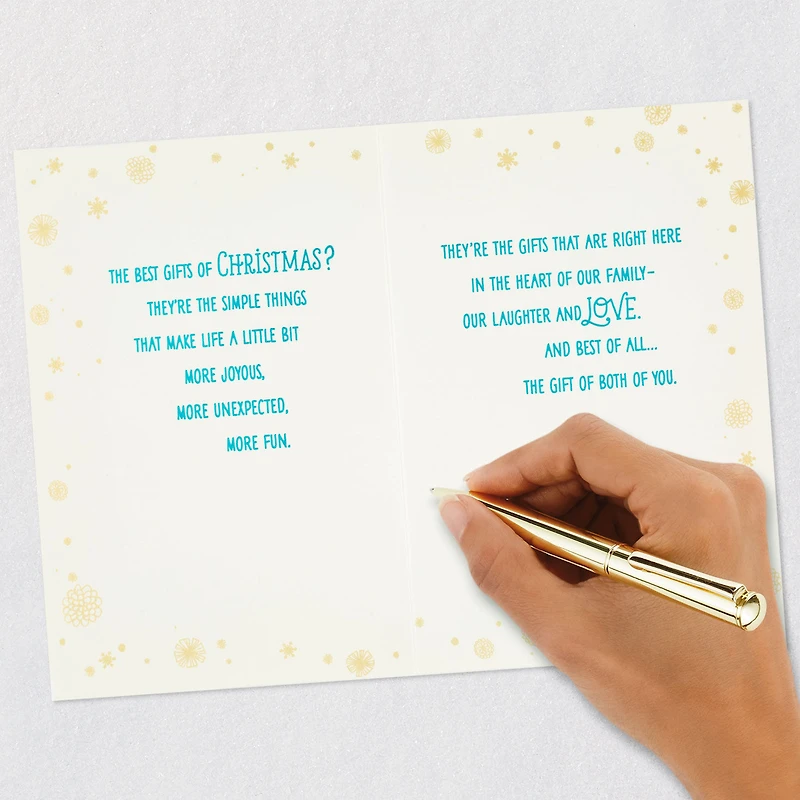 THE BEST GIFTS OF CHRISTMAS?
THEY'RE THE SIMPLE THINGS
THAT MAKE LIFE A LITTLE BIT
MORE JOYOUS,
MORE UNEXPECTED,
MORE FUN.
THEY'RE THE GIFTS THAT ARE RIGHT HERE
IN THE HEART OF OUR FAMILY–
OUR LAUGHTER AND LOVE.
AND BEST OF ALL...
THE GIFT OF BOTH OF YOU.